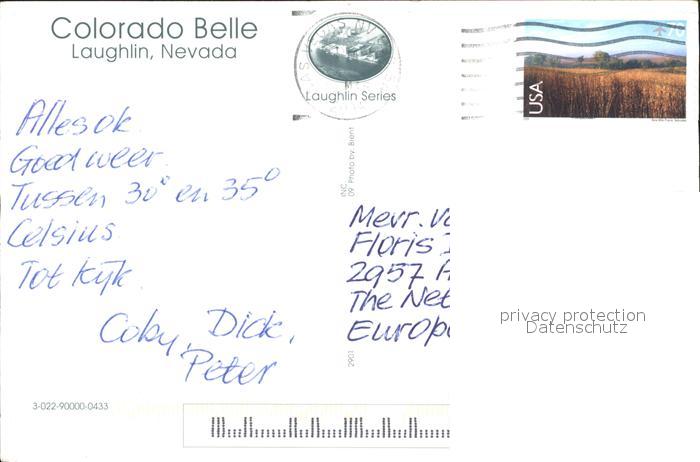 Colorado Belle
Laughlin, Nevada
Laughlin Series
USA
70
Alles ok.
Goed weer.
Tussen 30° en 35°
Celsius.
Tot kijk.
Coby, Dick,
Peter
Mevr. v
Floris
2957
The Net
Europ
09 Photo by: Brent
INC
2901
privacy protection
Datenschutz
3-022-90000-0433